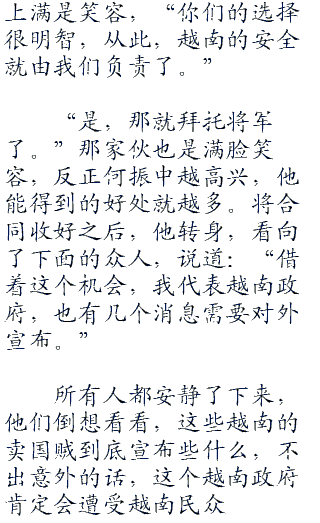 上满是笑容，“你们的选择
很明智，从此，越南的安全
就由我们负责了。”
“是，那就拜托将军
了。”那家伙也是满脸笑
容，反正何振中越高兴，他
能得到的好处就越多。将合
同收好之后，他转身，看向
了下面的众人，说道：“借
着这个机会，我代表越南政
府，也有几个消息需要对外
宣布。”
所有人都安静了下来，
他们倒想看看，这些越南的
卖国贼到底宣布些什么，不
出意外的话，这个越南政府
肯定会遭受越南民众